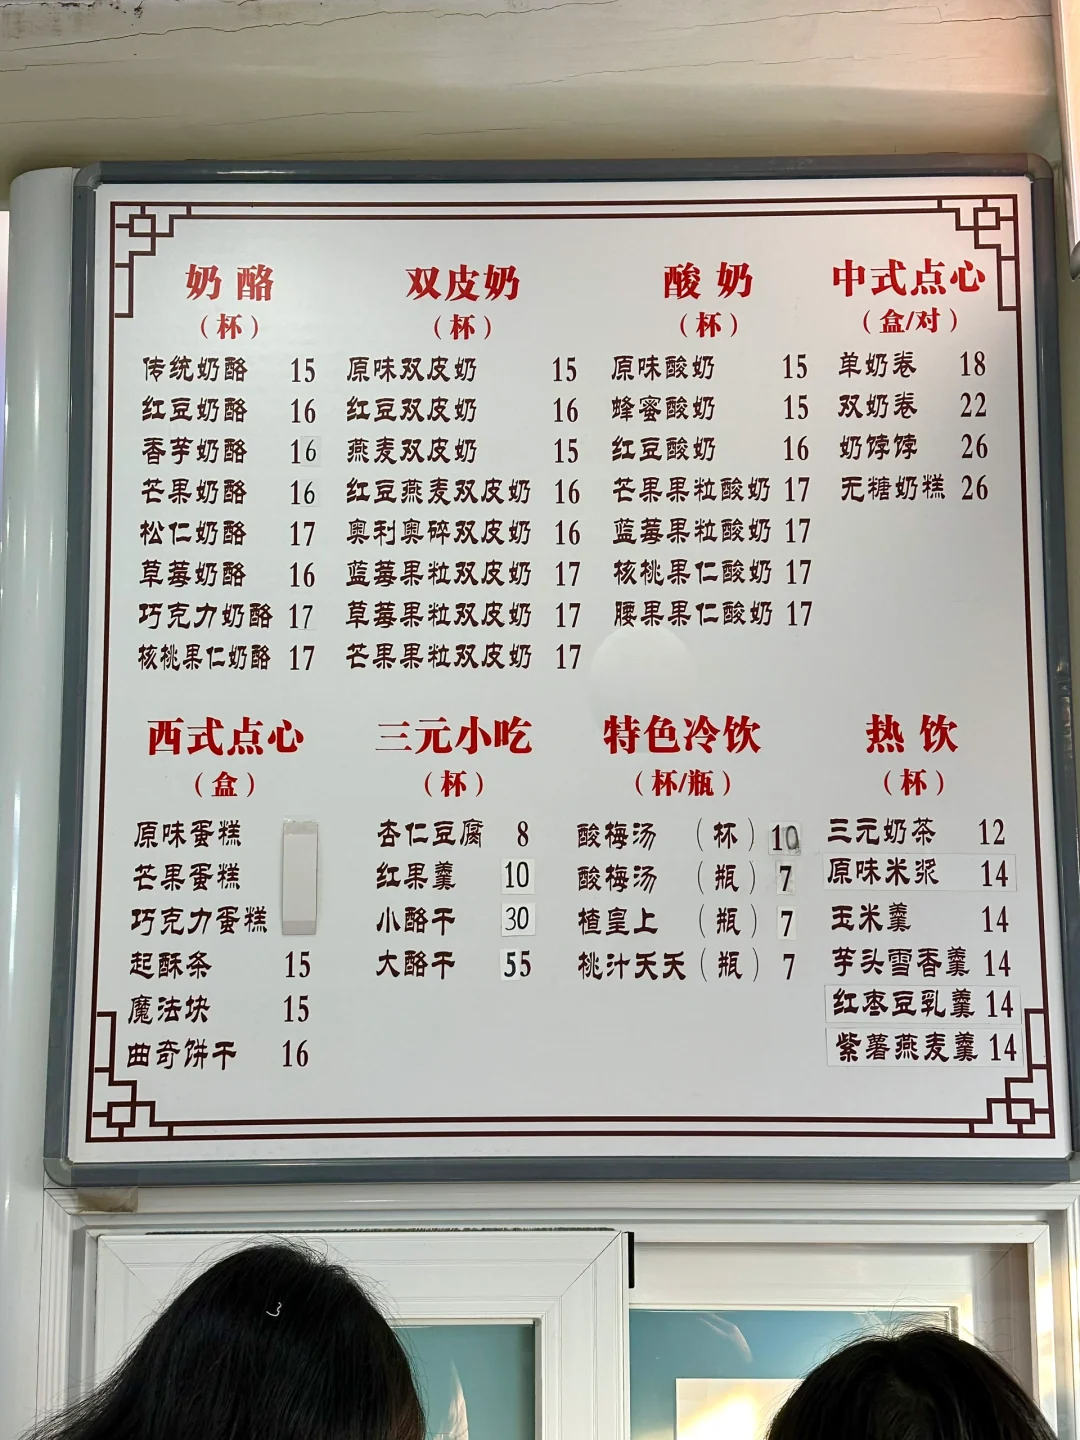 奶酪
（杯）
传统奶酪 15
红豆奶酪 16
香芋奶酪 16
芒果奶酪 16
松仁奶酪 17
草莓奶酪 16
巧克力奶酪 17
核桃果仁奶酪 17
双皮奶
（杯）
原味双皮奶 15
红豆双皮奶 16
燕麦双皮奶 15
红豆燕麦双皮奶 16
奥利奥碎双皮奶 16
蓝莓果粒双皮奶 17
草莓果粒双皮奶 17
芒果果粒双皮奶 17
酸奶
（杯）
原味酸奶 15
蜂蜜酸奶 15
红豆酸奶 16
芒果果粒酸奶 17
蓝莓果粒酸奶 17
核桃果仁酸奶 17
腰果果仁酸奶 17
中式点心
（盒/对）
单奶卷 18
双奶卷 22
奶饽饽 26
无糖奶糕 26
西式点心
（盒）
原味蛋糕
芒果蛋糕
巧克力蛋糕
起酥条 15
魔法块 15
曲奇饼干 16
三元小吃
（杯）
杏仁豆腐 8
红果羹 10
小酪干 30
大酪干 55
特色冷饮
（杯/瓶）
酸梅汤 （杯） 10
酸梅汤 （瓶） 7
楂皇上 （瓶） 7
桃汁夭夭（瓶） 7
热饮
（杯）
三元奶茶 12
原味米浆 14
玉米羹 14
芋头雪香羹 14
红枣豆乳羹 14
紫薯燕麦羹 14